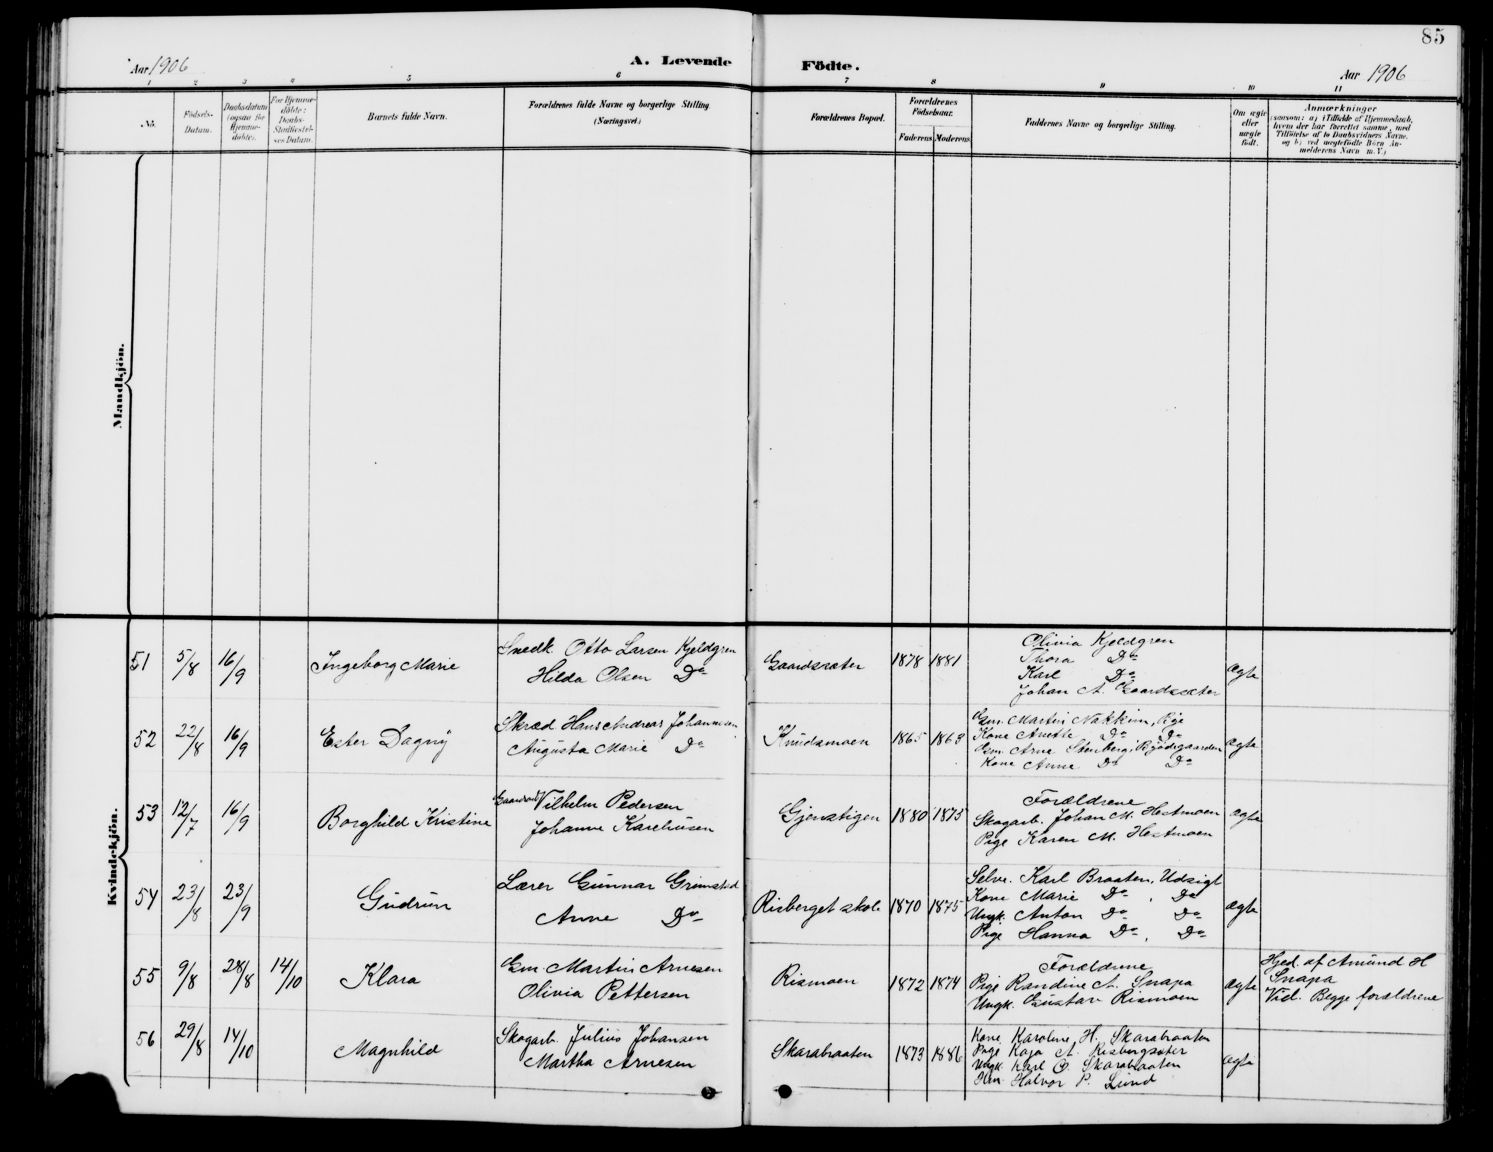 85
Aar 1906
A. Levende Födte.
Aar 1906
1 2 3 4 5 6 7 8 9 10 11
No.
Födsels-
Datum.
Daabsdatum
(ogsaa for
Hjemme-
døbte).
For Hjemme-
døbte:
Daabs-
Stadfæstel-
ses Datum.
Barnets fulde Navn.
Forældrenes fulde Navne og borgerlige Stilling
(Næringsvei.)
Forældrenes Bopæl.
Forældrenes
Födselsaar.
Faderens Moderens
Faddernes Navne og borgerlige Stilling.
Om ægte
eller
uægte
født.
Anmærkninger
Mandkjön.
Kvindekjön.
51 5/8 16/9 Ingeborg Marie
Snedk. Otto Larsen Kjeldgren
Hilda Olsen Do
Gaardsæter 1878 1881
Olivia Kjeldgren
Thora Do
Karl Do
Johan A. Gaardsæter
ægte
52 22/8 16/9 Ester Dagny
Skræd. Hans Andreas Johannesen
Augusta Marie Do
Knudsmoen 1865 1868
Gm. Martin Nakkim, Rye
Kone Anette Do Do
Gm. Arne Stenberg, Bjødegaarden
Kone Anne Do Do
ægte
53 12/7 16/9 Borghild Kristine
Vilhelm Pedersen
Johanne Karelinsen
Gjenstigen 1880 1875
Forældrene
Skogarb. Johan M. Hestmoen
Pige Karen M. Hestmoen
ægte
54 23/8 23/9 Gudrun
Lærer Gunnar Grimstad
Anne Do
Risberget skole 1870 1875
Selve. Karl Braaten, Udsigt
Kone Marie Do, Do
Ungk. Anton Do Do
Pige Hanna Do, Do
ægte
55 9/8 28/8 14/10 Klara
Gm. Martin Arnesen
Olivia Pettersen
Rismoen 1872 1874
Forældrene
Pige Randine A. Snapa
Ungk. Gustav Rismoen
ægte
Hjed. af Amund H
Snapa
Vid. Begge forældrene
56 29/8 14/10 Magnhild
Skogarb. Julius Johansen
Martha Arnesen
Skarabraaten 1873 1886
Kone Karoline H. Skarabraaten
Pige Kaja A. Risbergsæter
Ungk. Karl O. Skarabraaten
Halvor P. Lund
ægte